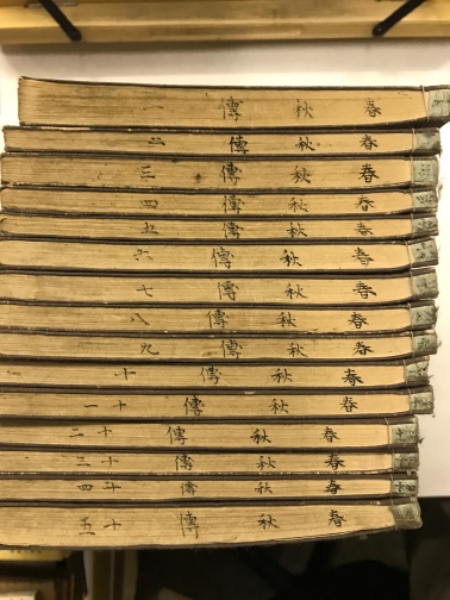 春秋傳一
春秋傳二
春秋傳三
春秋傳四
春秋傳五
春秋傳六
春秋傳七
春秋傳八
春秋傳九
春秋傳十
春秋傳十一
春秋傳十二
春秋傳十三
春秋傳十四
春秋傳十五